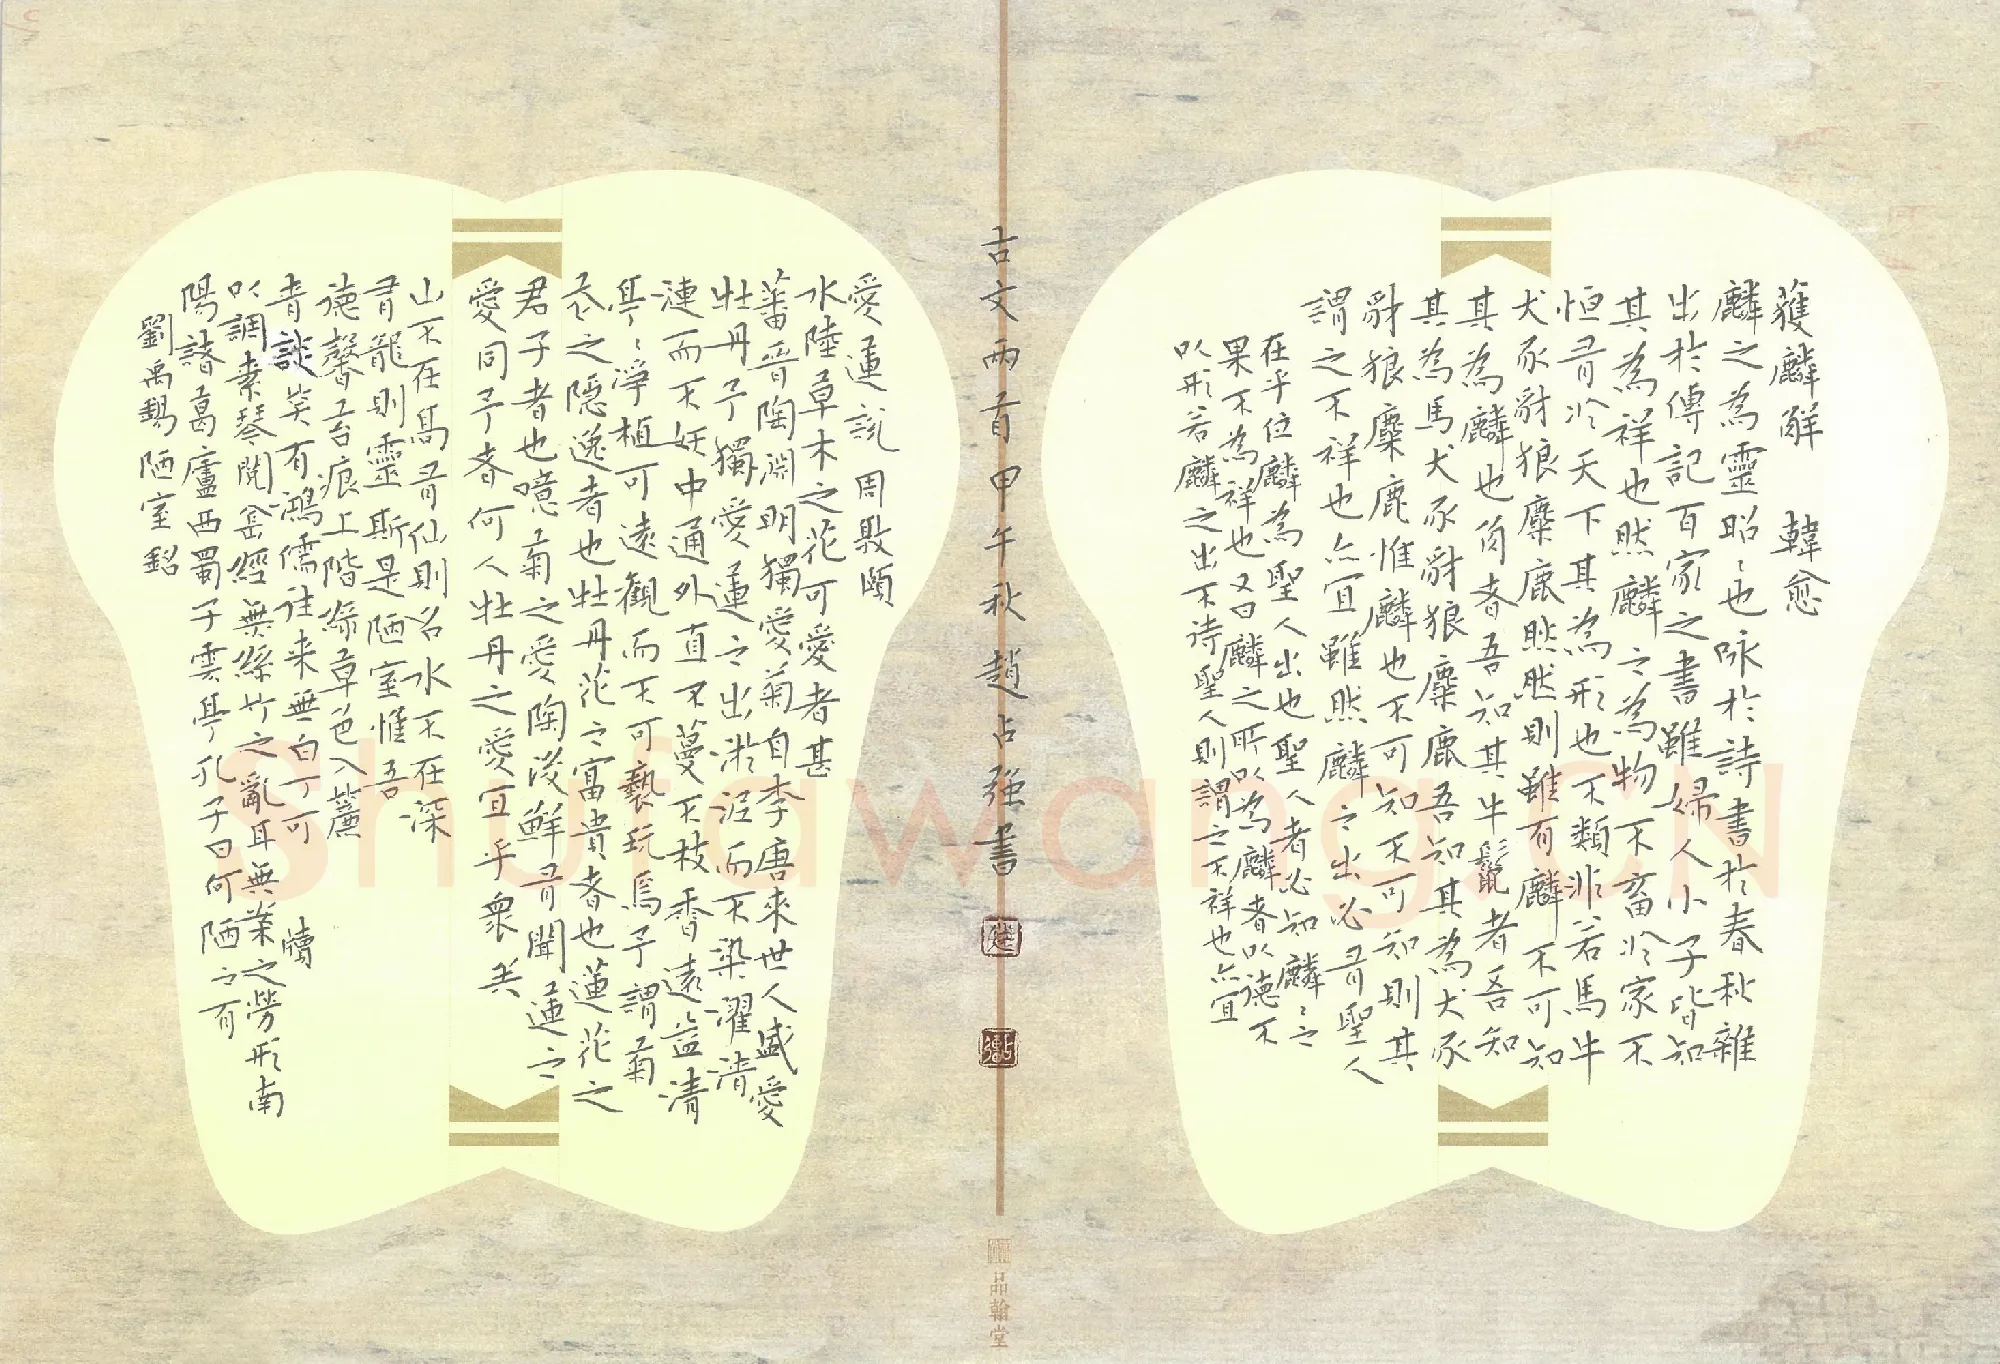 獲麟解 韓愈
麟之為靈昭〻也咏於詩書於春秋雜
出於傳記百家之書雖婦人小子皆知
其為祥也然麟之為物不畜於家不
恒有於天下其為形也不類非若馬牛
犬豕豺狼麋鹿然然則雖有麟不可知
其為麟也角者吾知其牛鬣者吾知
其為馬犬豕豺狼麋鹿吾知其為犬豕
豺狼麋鹿惟麟也不可知不可知則其
謂之不祥也亦宜雖然麟之出必有聖人
在乎位麟為聖人出也聖人者必知麟〻之
果不為祥也又曰麟之所以為麟者以德不
以形若麟之出不詩聖人則謂之不祥也亦宜
古文兩首甲午秋趙占强書
品翰堂
愛蓮説 周敦頤
水陸草木之花可愛者甚
蕃晋陶淵明獨愛菊自李唐來世人盛愛
牡丹予獨愛蓮之出淤泥而不染濯清
漣而不妖中通外直不蔓不枝香遠益清
亭〻淨植可遠觀而不可褻玩焉予謂菊
花之隱逸者也牡丹花之富貴者也蓮花之
君子者也噫菊之愛陶後鮮有聞蓮之
愛同予者何人牡丹之愛宜乎衆矣
山不在高有仙則名水不在深
有龍則靈斯是陋室惟吾
德馨苔痕上階綠草色入簾
青談笑有鴻儒往来無白丁可 牘
以調素琴閱金經無絲竹之亂耳無案之勞形南
陽諸葛廬西蜀子雲亭孔子曰何陋之有
劉禹錫陋室銘
Shufawang.CN